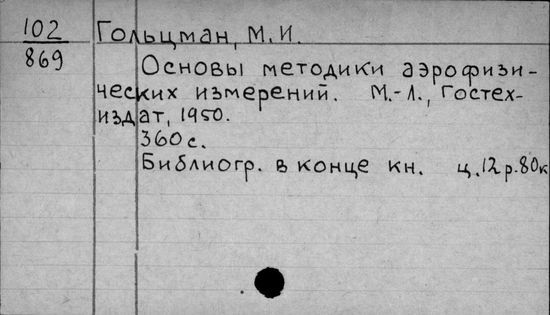 102
869
Гольцман, М.И.
Основы методики аэрофизи-
ческих измерений. М.-Л., Гостех-
издат, 1950.
360 с.
Библиогр. в конце кн. ц.12р.80к